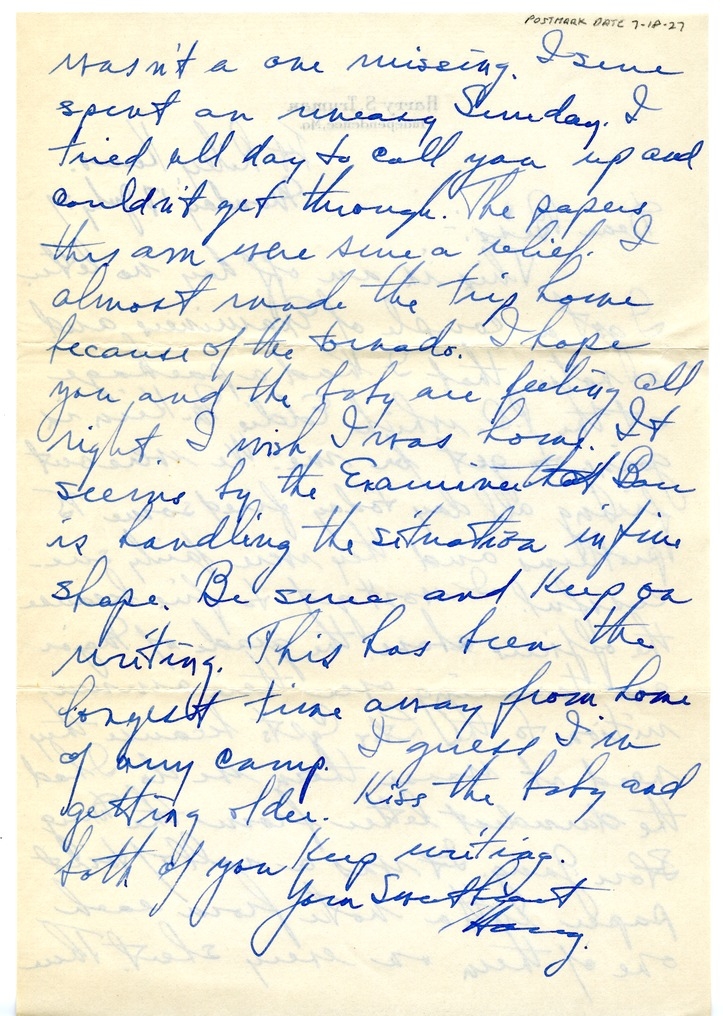 POSTMARK DATE 7-18-27
wasn't a one missing. I sure
spent an uneasy Sunday. I
tried all day to call you up and
couldn't get through. The papers
this am were sure a relief. I
almost made the trip home
because of the tornado. I hope
you and the baby are feeling all
right. I wish I was home. It
seems by the Examiner that
is handling the situation in fine
shape. Be sure and keep on
writing. This has been the
longest time away from home
of any camp. I guess I'm
getting older. Kiss the baby and
both of you keep writing.
Your Sweetheart
Harry.
Harry S. Truman
Independence, Mo.